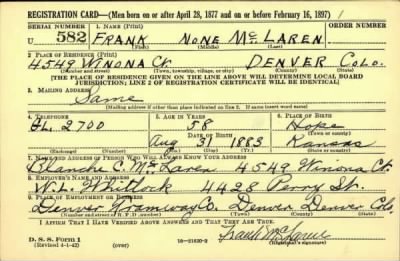 REGISTRATION CARD—(Men born on or after April 28, 1877 and on or before February 16, 1897)
SERIAL NUMBER 1. NAME (Print) ORDER NUMBER
U 582 FRANK NONE McLAREN
(First) (Middle) (Last)
2. PLACE OF RESIDENCE (Print)
4549 WINONA Ct. DENVER COLO.
(Number and street) (Town, township, village, or city) (County) (State)
[THE PLACE OF RESIDENCE GIVEN ON THE LINE ABOVE WILL DETERMINE LOCAL BOARD
JURISDICTION; LINE 2 OF REGISTRATION CERTIFICATE WILL BE IDENTICAL]
3. MAILING ADDRESS
Same
(Mailing address if other than place indicated on line 2. If same insert word same)
4. TELEPHONE 5. AGE IN YEARS 6. PLACE OF BIRTH
GL. 2700 58 Hope
DATE OF BIRTH (Town or county)
Aug 31 1883 Kansas
(Exchange) (Number) (Mo.) (Day) (Yr.) (State or country)
7. NAME AND ADDRESS OF PERSON WHO WILL ALWAYS KNOW YOUR ADDRESS
Blanche C. McLaren 4549 Winona Ct.
8. EMPLOYER'S NAME AND ADDRESS
W.L. Whitlock 4428 Perry St.
9. PLACE OF EMPLOYMENT OR BUSINESS
Denver Tramway Co. Denver Denver Colo
(Number and street or R. F. D. number) (Town) (County) (State)
I AFFIRM THAT I HAVE VERIFIED ABOVE ANSWERS AND THAT THEY ARE TRUE.
D. S. S. Form 1
(Revised 4-1-42) (over) 16—21630-2 Frank McLaren
(Registrant's signature)